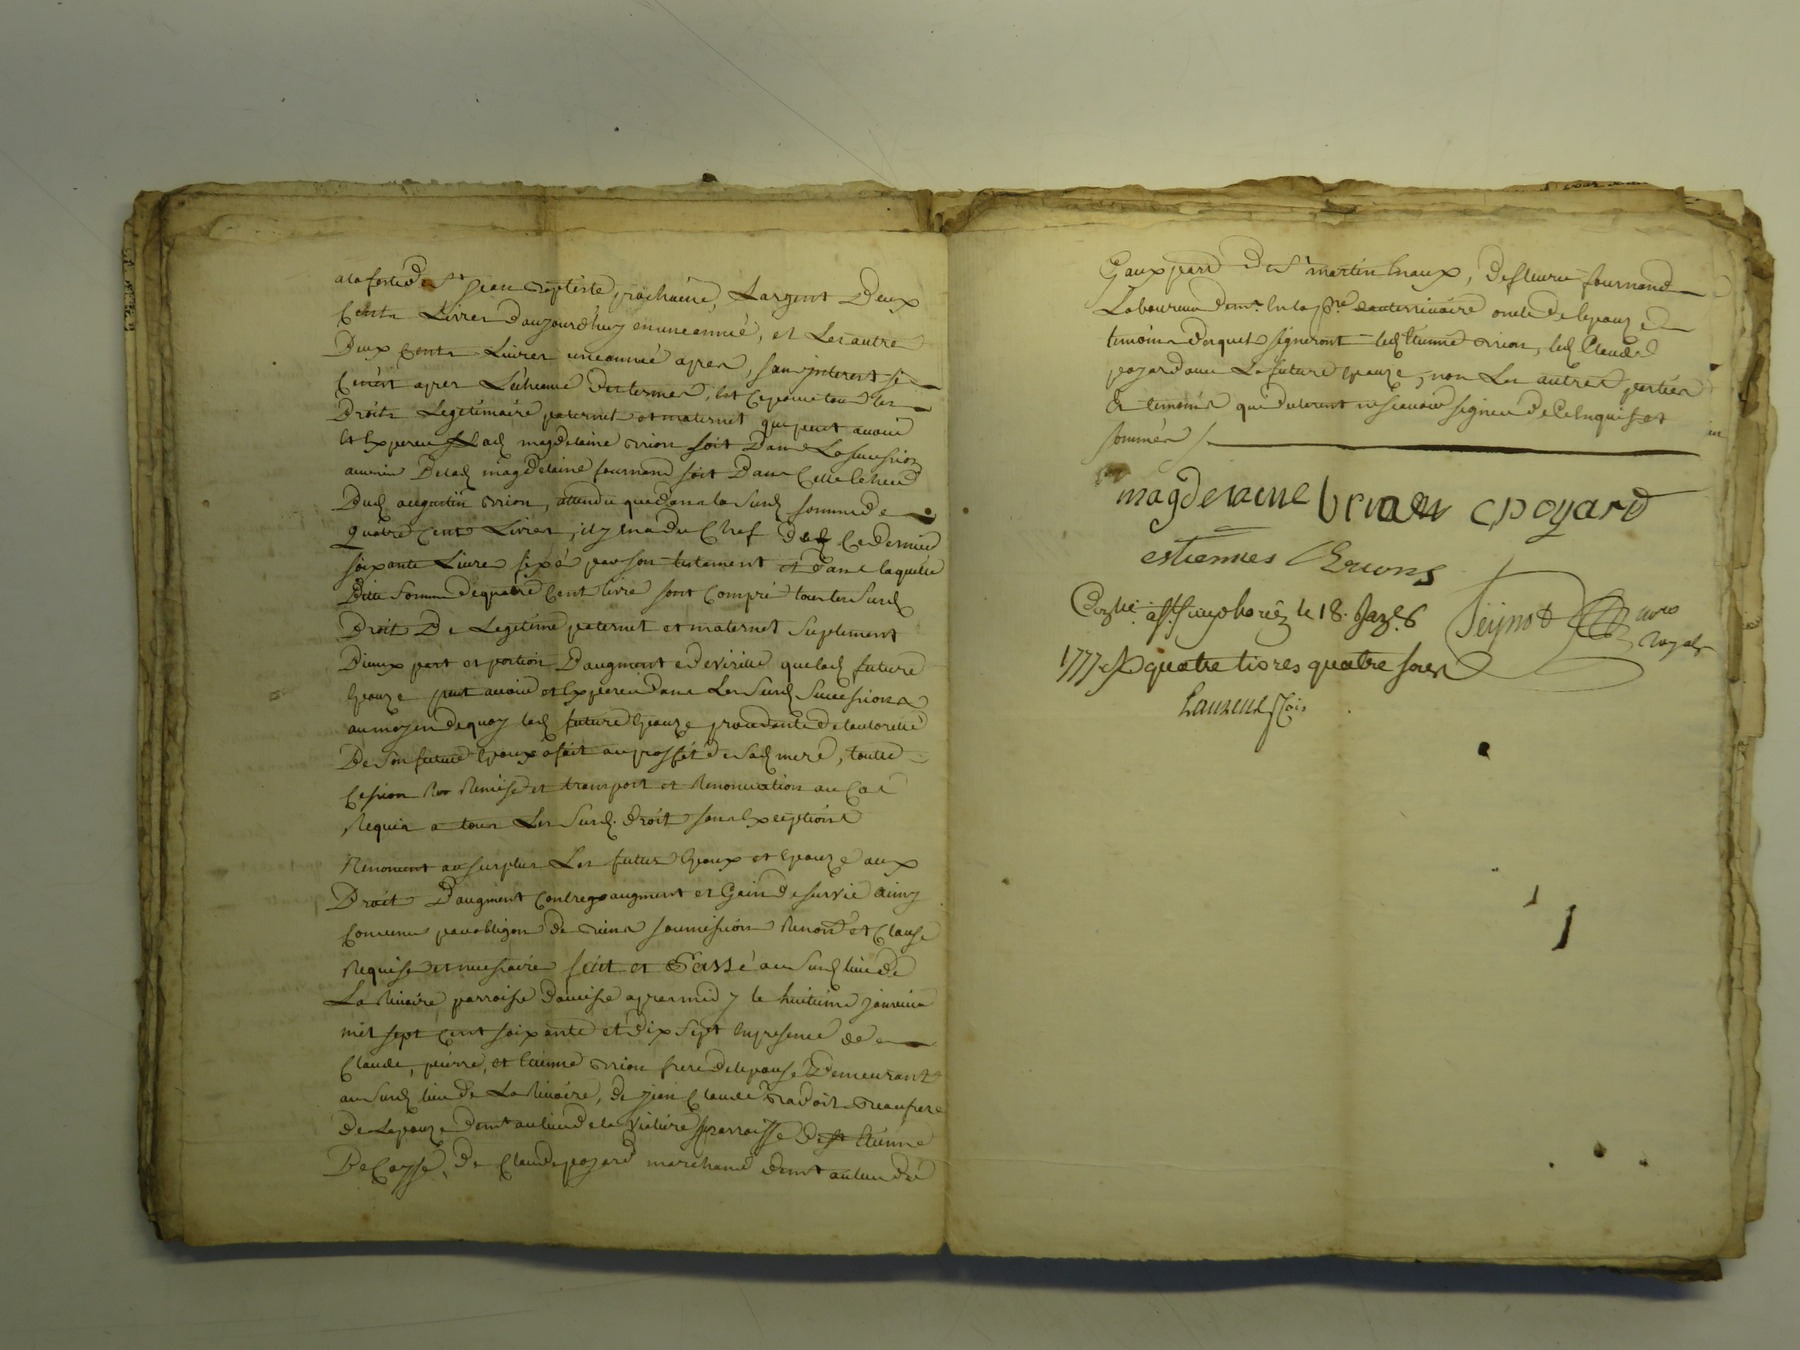 a la feste de St jean Baptiste prochaine, L'argent Deux
Cents Livres d'aujourd'huy en une année, et Les autre
Deux Cents Livres une année apres, sans interest si
Ce n'est apres L'echeance des termes, Et Ce pour tous les
Droits Legitimaire paternel et maternel que peut avoir
Et Esperer Lad magdelaine Brion soit Dans La succession
avenir De lad magdelaine fournand soit Dans Celle
Dud augustin Brion, attendu que dans la susd somme de
quatre Cent Livres, il y en a du Chef dud Ce dernier
soixante Livres fixé par son testament et dans laquelle
Ditte somme de quatre Cent livre sont Compri tous les susd
Droits De Legitime paternel et maternel suplement
D'ieux part et portion D'augment et de virille que lad future
Epouze peut avoir et Esperer dans Les susd successions
au moyen de quoy lad future Epouze procedante de l'autorité
De son futur Epoux a fait au proffit de sad mere, toutes
Cession remise et transport et Renonciation au Cas
Requis a tous Les susd. droit sans Exceptions
Renoncent au surplus Les futur Epoux et Epouze aux
Droit D'augment Contreaugment et Gain de survie ainsy
Convenu par obligon de Biens soumission Renon et Clause
Requise et necessaire fait et Passé au susd lieu de
La Rivoire parroisse apres midy le huitieme janvier
mil sept Cent soixante et dix sept En presence de
Claude, pierre, et Etienne Brion frere de l'epouse Demeurant
au susd lieu de La Rivoire, de jean Claude Beaufrere
De L'epouze demt au lieu de la parroisse de st Etienne
De Claude poyard marchand demt au lieu de
Gauxpard De St martin
Laboureur demt En la p. oncle de l'epouze
temoins Desquels signeront led Etienne Brion, led Claude
poyard avec La future Epouze, non Les autres parties
et temoins qui declarent ne scavoir signer de Ce Enquis et
sommés
magdelaine brion cpoyard
estiennes Brions
le 18. Janv.
1777 quatre livres quatre sous
Laurens